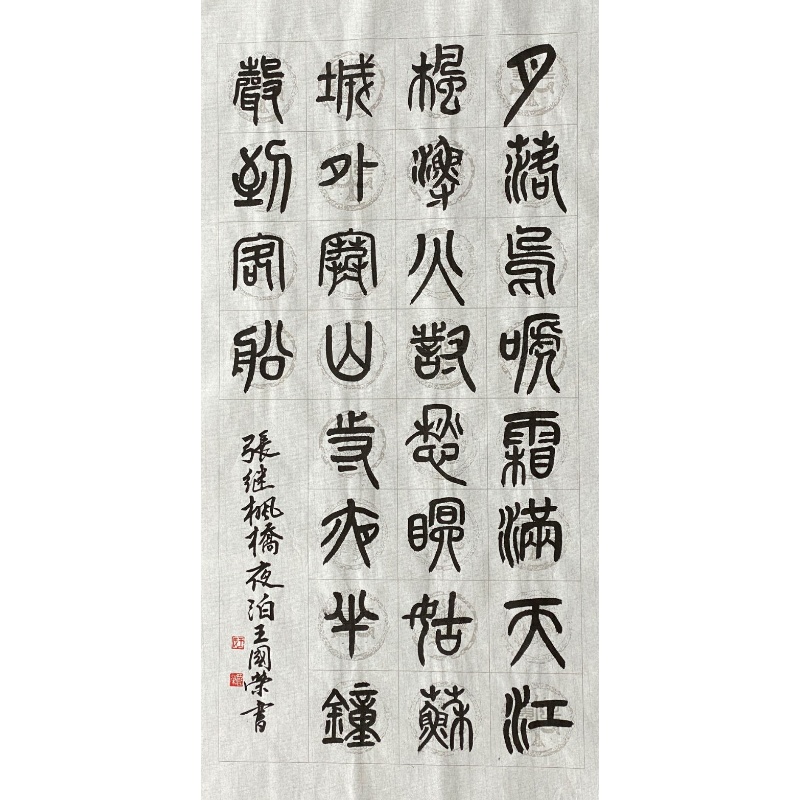 月落烏嗁霜滿天江
楓漁火對愁眠姑蘇
城外寒山寺夜半鐘
聲到客船
張继楓橋夜泊王國榮書